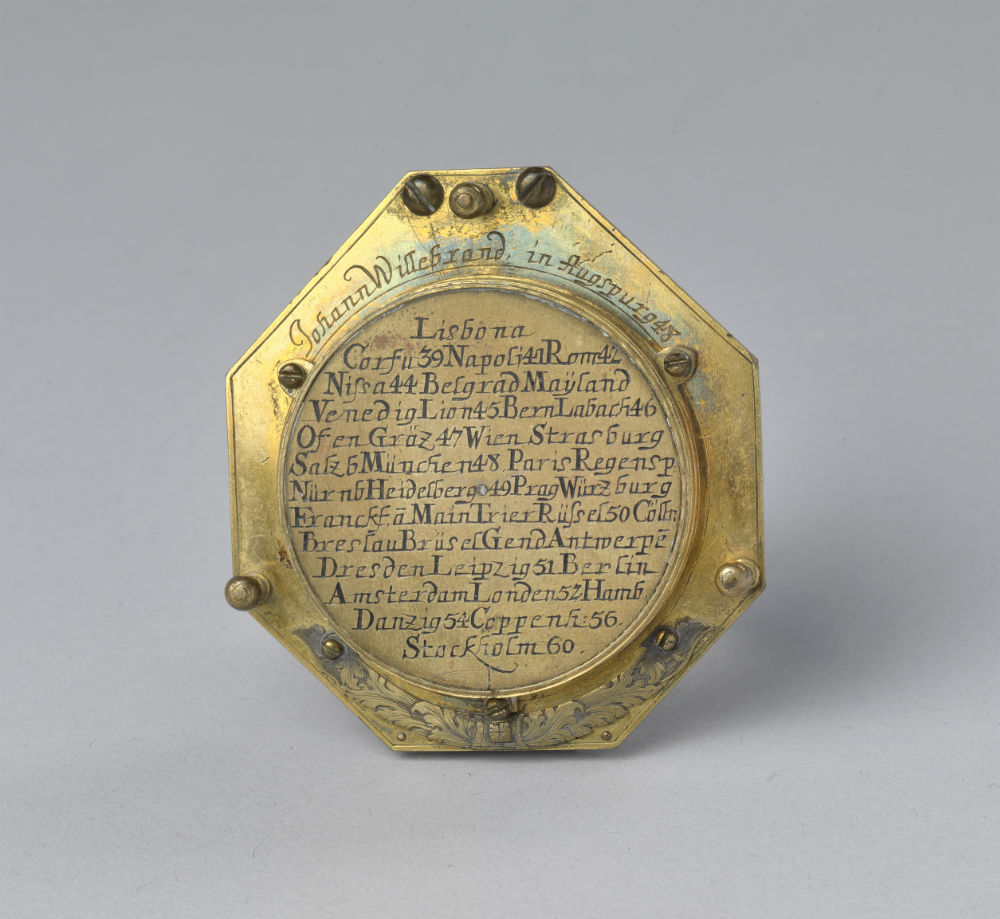 Johann Willebrand, in Augspurg 48
Lisbona
Corfu 39 Napoli 41 Rom 42
Nissa 44 Belgrad Mayland
Venedig Lion 45 Bern Labach 46
Ofen Gräz 47 Wien Strasburg
Salzb München 48 Paris Regensp
Nürnb Heidelberg 49 Prag Würzburg
Franckf. ā Main Trier Rüssel 50 Cölln
Breslau Brüsel Gend Antwerpē
Dresden Leipzig 51 Berlin
Amsterdam Londen 52 Hamb.
Danzig 54 Coppenh: 56.
Stockholm 60.